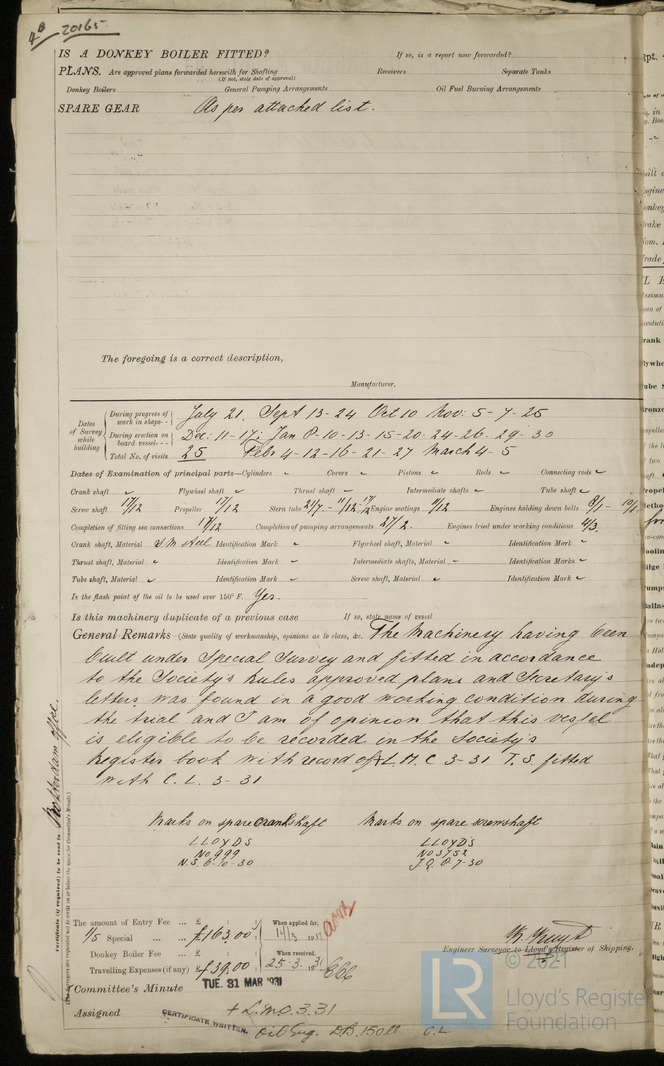 4B 20165
IS A DONKEY BOILER FITTED? If so, is a report now forwarded?
PLANS. Are approved plans forwarded herewith for Shafting Receivers Separate Tanks
(If not, state date of approval)
Donkey Boilers General Pumping Arrangements Oil Fuel Burning Arrangements
SPARE GEAR As per attached list.
The foregoing is a correct description,
Manufacturer.
Dates of Survey while building
During progress of work in shops-- July 21. Sept 13-24 Oct 10 Nov: 5-7-25
During erection on board vessel--- Dec: 11-17; Jan 8-10-13-15-20-24-26-29-30
Total No. of visits 25 Febr 4-12-16-21-27 March 4-5
Dates of Examination of principal parts—Cylinders Covers Pistons Rods Connecting rods
Crank shaft Flywheel shaft Thrust shaft Intermediate shafts Tube shaft
Screw shaft 17/12 Propeller 17/12 Stern tube 21/7 - 11/12-17/12 Engine seatings 11/12 Engines holding down bolts 8/1 - 10/1
Completion of fitting sea connections 17/12 Completion of pumping arrangements 27/2. Engines tried under working conditions 4/3.
Crank shaft, Material S.M. steel Identification Mark Flywheel shaft, Material Identification Mark
Thrust shaft, Material Identification Mark Intermediate shafts, Material Identification Marks
Tube shaft, Material Identification Mark Screw shaft, Material Identification Mark
Is the flash point of the oil to be used over 150° F. Yes.
Is this machinery duplicate of a previous case If so, state name of vessel
General Remarks (State quality of workmanship, opinions as to class, &c. The Machinery having been
built under Special Survey and fitted in accordance
to the Society's Rules approved plans and Secretary's
letters, was found in a good working condition during
the trial and I am of opinion that this vessel
is eligible to be recorded in the Society's
Register book with record of + L.M.C 3-31 T.S. fitted
with C.L. 3-31
Marks on spare crankshaft Marks on spare screwshaft
LLOYDS LLOYDS
No 999 No 3752
N.S. 6-10-30 J.Q. 8-7-30
Rotterdam office.
Certificate (if required) to be sent to
(The Surveyors are requested not to write on or below the space for Committee's Minute.)
The amount of Entry Fee ... £ : : When applied for,
4/5 Special ... ... £163.00: 14/3 1931
Donkey Boiler Fee ... £ : : When received,
Travelling Expenses (if any) £39.00: 25-3-31
Engineer Surveyor to Lloyd's Register of Shipping.
Committee's Minute TUE. 31 MAR 1931
Assigned + L.M.C. 3.31
CERTIFICATE WRITTEN.
Oil Eng. D.B. 150 lb C.L.
LR
© 2021
Lloyd's Register
Foundation